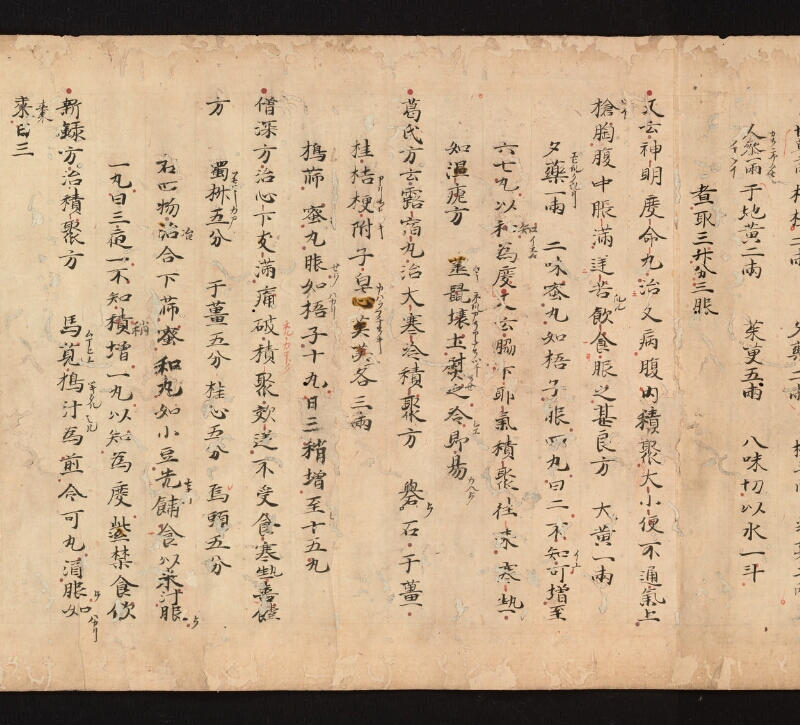 人参一両 干地黄二両 茱萸五両 八味切以水一斗
煮取三升分三服
又云神明度命丸治久病腹内積聚大小便不通氣上
搶胸腹中脹満逆害飲食服之甚良方 大黄一両
夕藥一両 二味蜜丸如梧子服四丸日二不知可増至
六七丸以知為度又云脇下耶氣積聚往来寒熱
如温瘧方 蒸鼠壤土熨之冷即易
葛氏方云露宿丸治大寒冷積聚方 礜石 干薑
桂 桔梗 附子 皂莢各三両
搗篩蜜丸服如梧子十丸日三稍増至十五丸
僧深方治心下支満痛破積聚欬逆不受食寒熱喜噎
方 蜀椒五分 干薑五分 桂心五分 烏頭五分
右四物治合下篩蜜和丸如小豆先餔食以米汁服
一丸日三夜一不知稍増一丸以知為度禁食飲
新録方治積聚方 馬莧搗汁為煎令可丸酒服如
棗日三